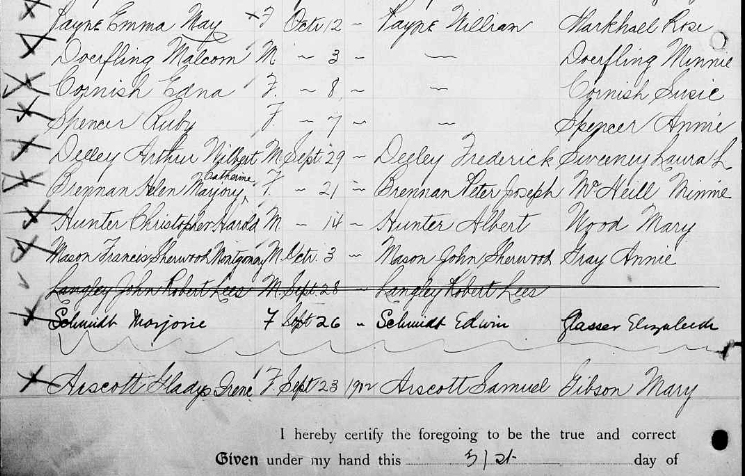 Payne Emma May F Octr 12 – Payne William Markhael Rose
Doerfling Malcom M – 3 – – Doerfling Minnie
Cornish Edna F. – 8 – – Cornish Susie
Spencer Ruby F – 7 – – Spencer Annie
Deeley Arthur Wilbert M Sept 29 – Deeley Frederick Sweeney Laura L
Catherine
Brennan Helen Marjory F. – 21 – Brennan Peter Joseph McNeill Minnie
Hunter Christopher Harold M – 14 – Hunter Albert Wood Mary
Mason Francis Sherwood Montgomery M Octr. 3 – Mason John Sherwood Gray Annie
Langley John Robert Lees M Sept 28 – Langley Robert Lees
Schmidt Marjorie F Sept 26 – Schmidt Edwin Glasser Elizabeth
Arscott Gladys Irene F Sept 23 1902 Arscott Samuel Gibson Mary
I hereby certify the foregoing to be the true and correct
Given under my hand this 31st day of